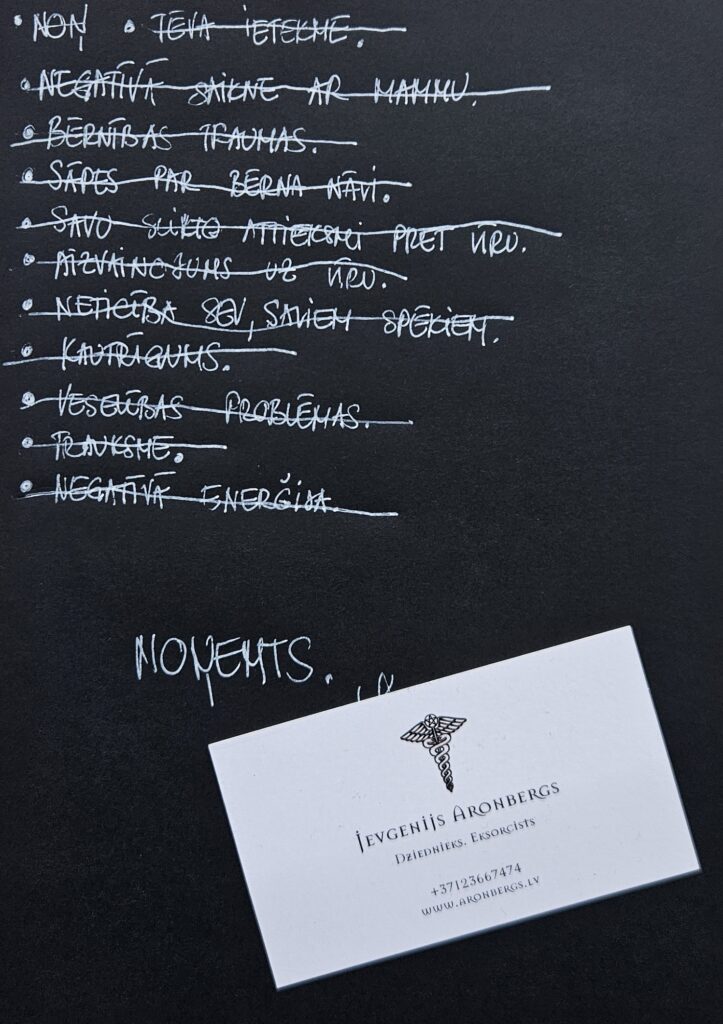 • NOŅ • TĒVA IETEKME.
• NEGATĪVĀ SAIKNE AR MAMMU.
• BĒRNĪBAS TRAUMAS.
• SĀPES PAR BĒRNA NĀVI.
• SAVU SLIKTO ATTIEKSMI PRET ŪRU.
• AIZVAINOJUMS UZ ŪRU.
• NETICĪBA SEV, SAVIEM SPĒKIEM.
• KAUTRĪGUMS.
• VESELĪBAS PROBLĒMAS.
• TRAUKSME.
• NEGATĪVĀ ENERĢIJA.
NOŅEMTS.
JEVGENIJS ARONBERGS
DZIEDNIEKS. EKSORCISTS
+37123667474
WWW.ARONBERGS.LV